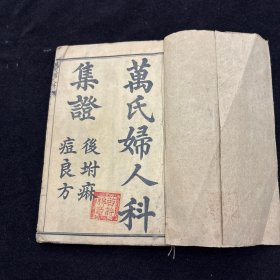 萬氏婦人科
集證
後坿痲
痘良方